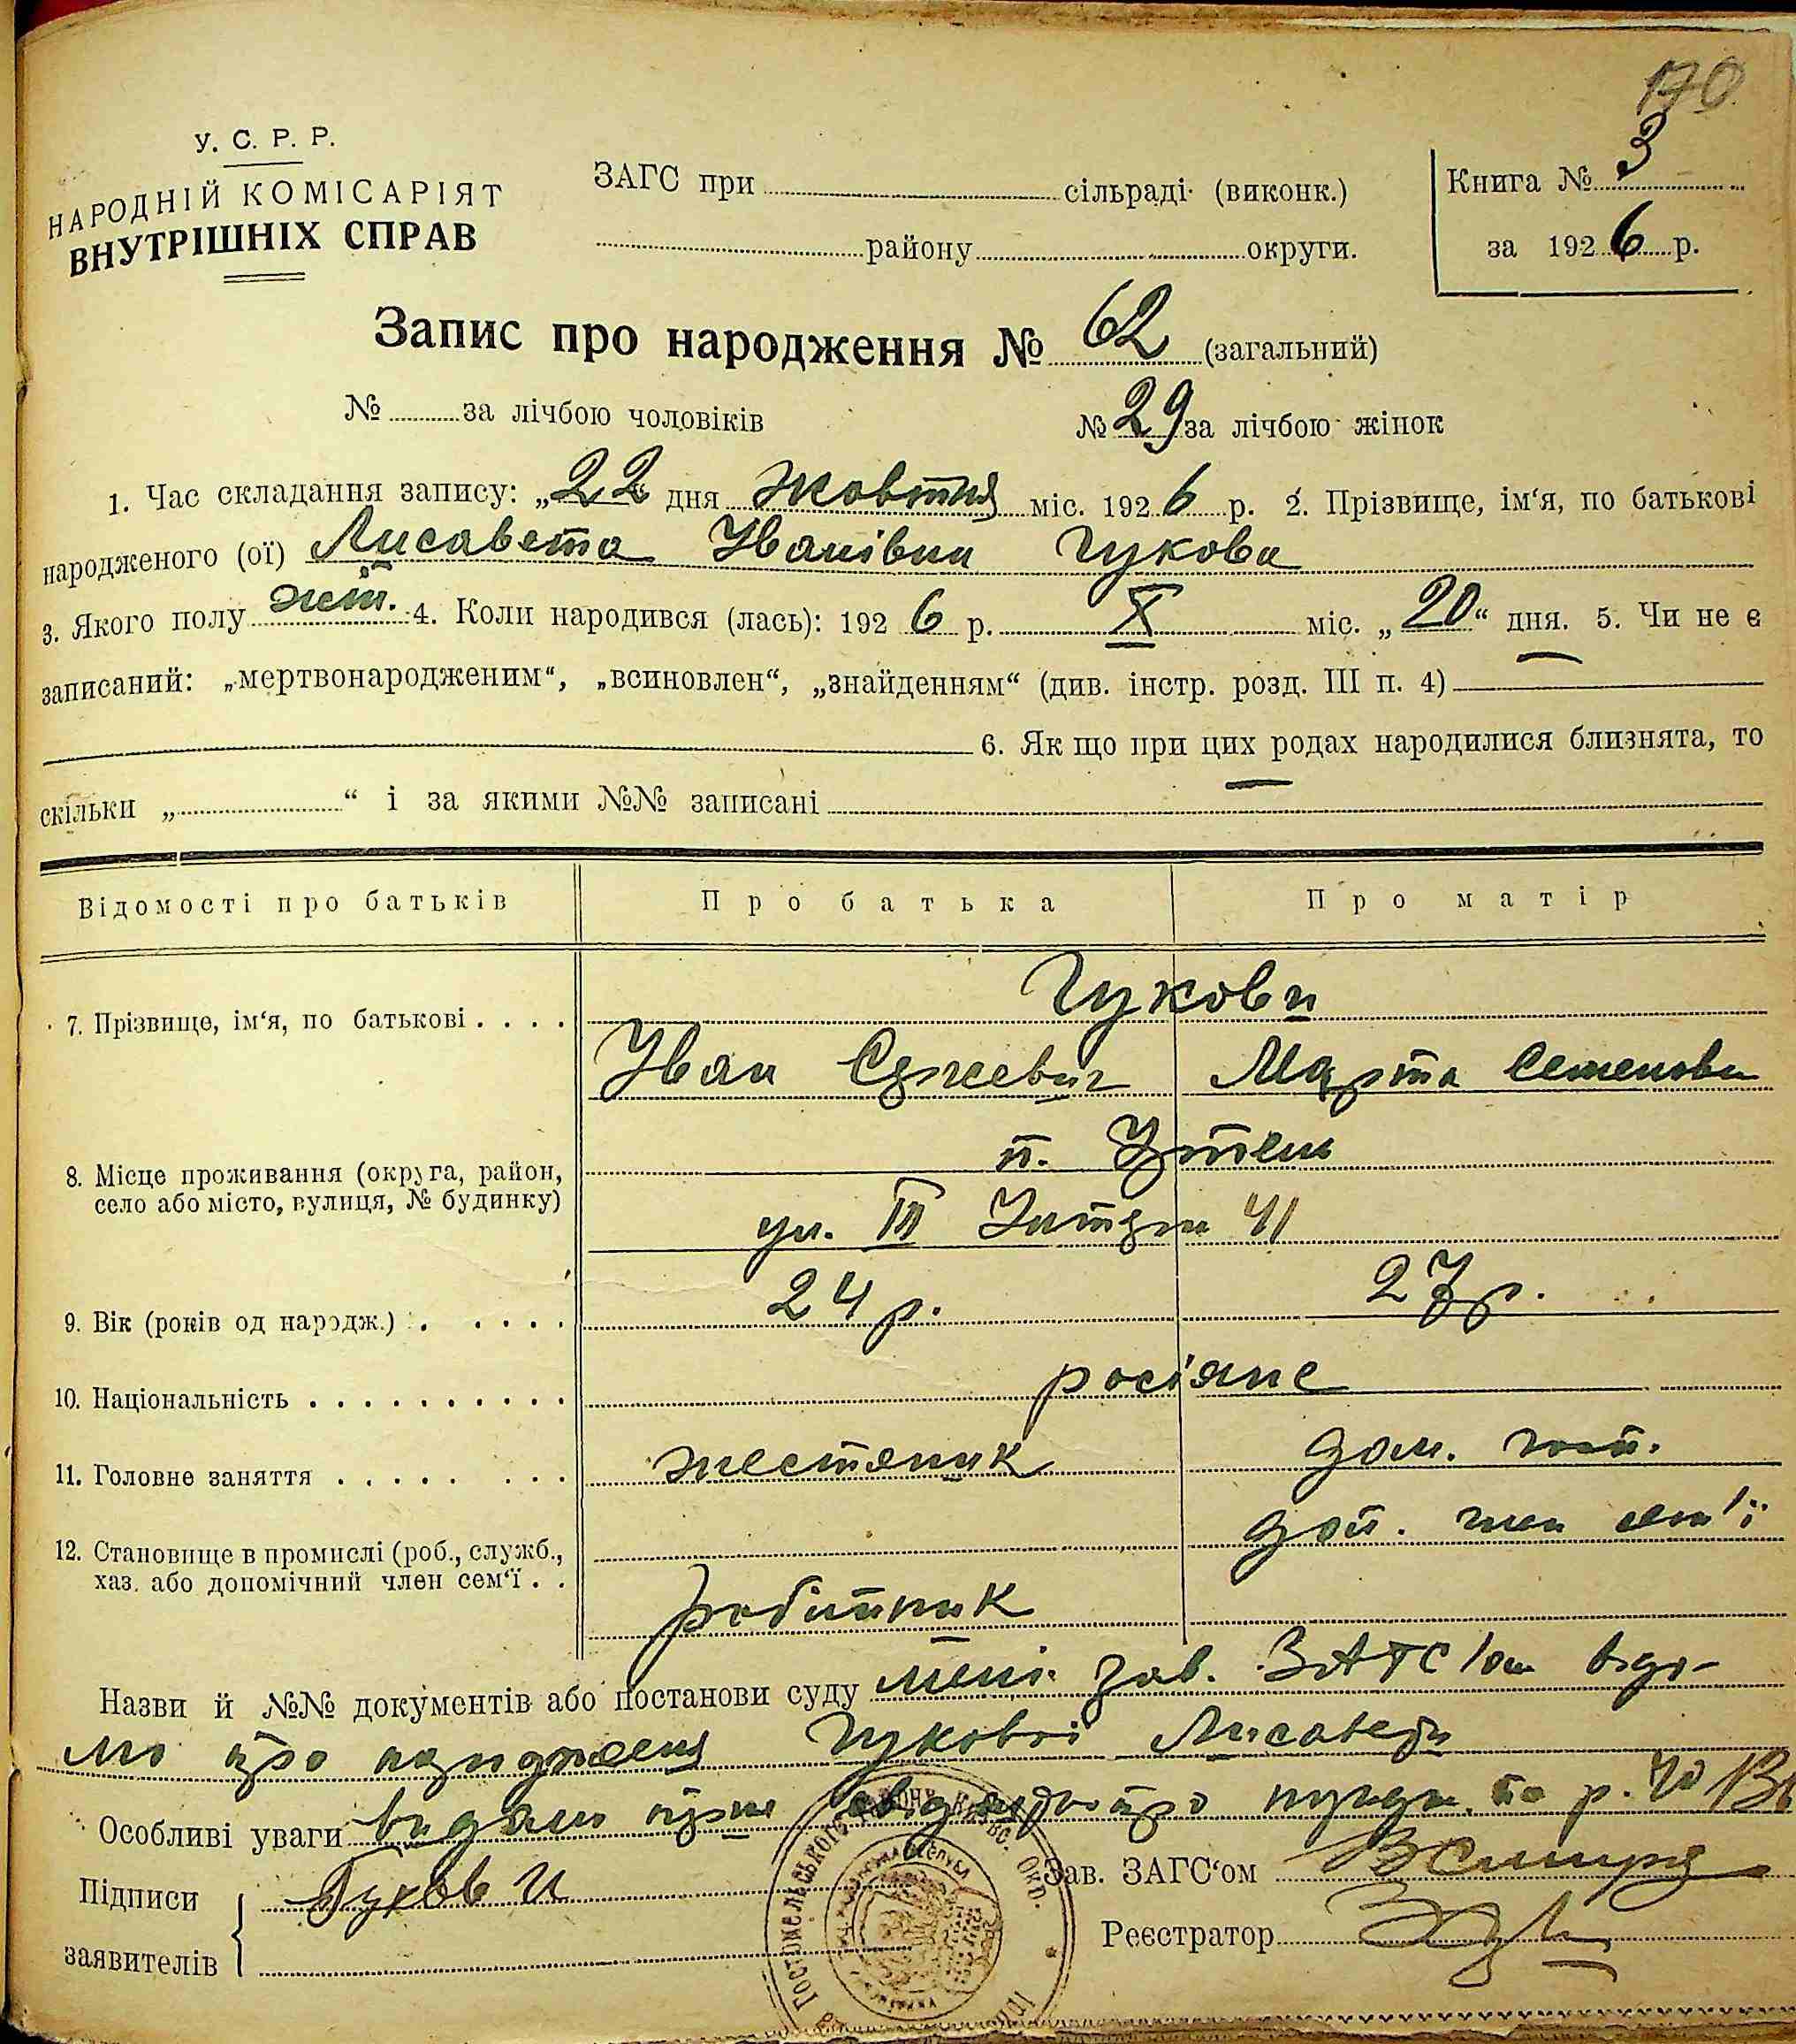 170
У. С. Р. Р.
НАРОДНІЙ КОМІСАРІЯТ
ВНУТРІШНІХ СПРАВ
ЗАГС при сільраді (виконк.)
району округи.
Книга № 3
за 1926 р.
Запис про народження № 62 (загальний)
№ за лічбою чоловіків № 29 за лічбою жінок
1. Час складання запису: „22 дня жовтня міс. 1926 р. 2. Прізвище, ім‘я, по батькові
народженого (ої) Лисавета Іванівна Гукова
3. Якого полу жін. 4. Коли народився (лась): 1926 р. X міс. „20“ дня. 5. Чи не є
записаний: „мертвонародженим“, „всиновлен“, „знайденням“ (див. інстр. розд. III п. 4)
6. Як що при цих родах народилися близнята, то
скільки „ “ і за якими №№ записані
Відомості про батьків Про батька Про матір
Гукови
7. Прізвище, ім‘я, по батькові
Іван Сергеевич Марта Семеновна
п. Ірпень
8. Місце проживання (округа, район,
село або місто, вулиця, № будинку)
ул. III Інтерн 41
9. Вік (років од народж.) 24 р. 27 р.
10. Національність росіяне
11. Головне заняття жестяник дом. госп.
доп. член сем'ї
12. Становище в промислі (роб., служб.,
хаз. або допомічний член сем‘ї
робітник
Назви й №№ документів або постанови суду мені зав. ЗАГС'ом відо-
мо про народження Гукової Лисавети
Особливі уваги видано про р. № 13
Підписи
заявителів
Гуков И
Зав. ЗАГС‘ом
Реєстратор
ГОСТОМЕЛЬСЬКОГО РАЙОНУ КИЇВС. ОКР.